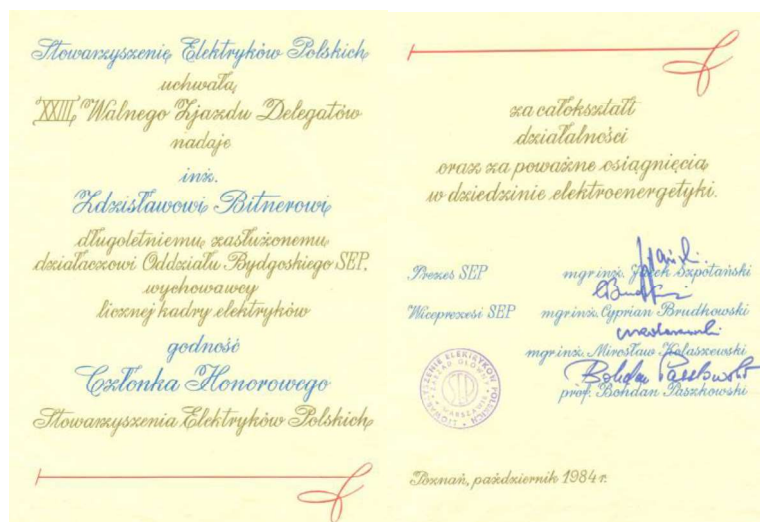 Stowarzyszenie Elektryków Polskich
uchwałą
XXIII Walnego Zjazdu Delegatów
nadaje
inż.
Zdzisławowi Bitnerowi
długoletniemu zasłużonemu
działaczowi Oddziału Bydgoskiego SEP,
wychowawcy
licznej kadry elektryków
godność
Członka Honorowego
Stowarzyszenia Elektryków Polskich
za całokształt
działalności
oraz za poważne osiągnięcia
w dziedzinie elektroenergetyki.
Prezes SEP mgr inż. Jacek Szpotański
Wiceprezesi SEP mgr inż. Cyprian Brudkowski
mgr inż. Mirosław Kołaszewski
Bohdan Paszkowski
prof. Bohdan Paszkowski
STOWARZYSZENIE ELEKTRYKÓW POLSKICH
ZARZĄD GŁÓWNY
SEP
WARSZAWA
Poznań, październik 1984 r.